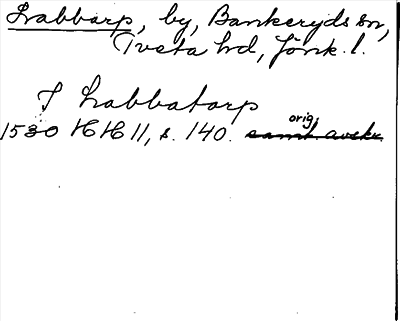 Labbarp, by, Bankeryds sn,
Tveta hd, Jönk. l.
J Labbatarp
orig.
1530 HH 11, s. 140. samt. avskr